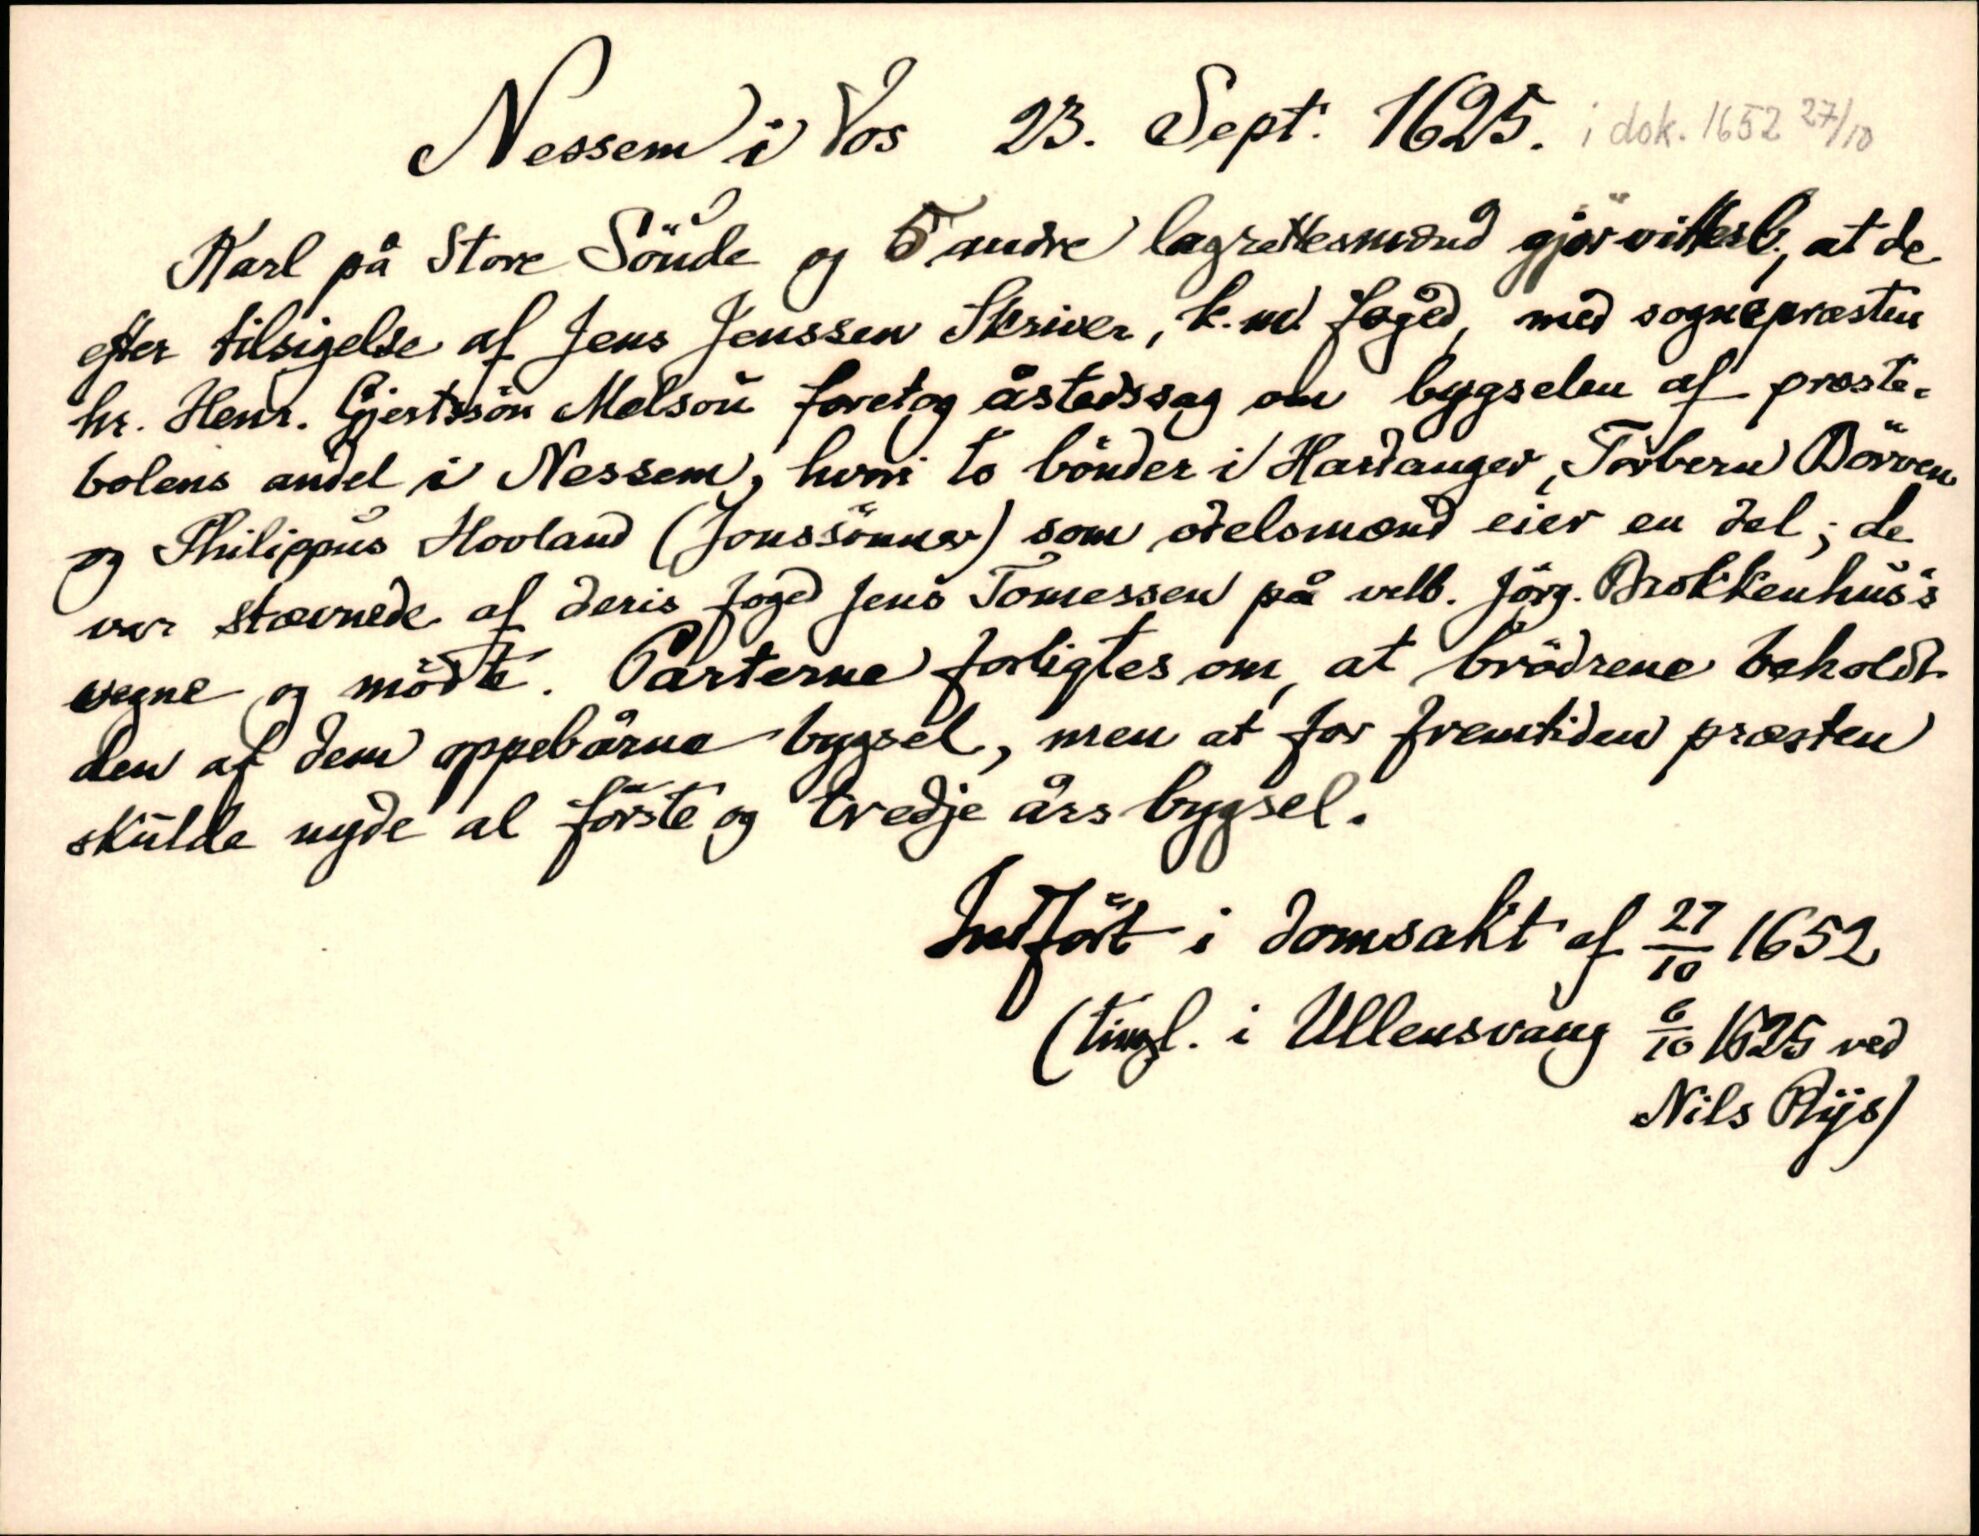 Nessem i Vos 23. Sept. 1625. i dok. 1652 27/10
Karl på Store Sönde og 5 andre lagrettesmænd gjør vitterl., at de
efter tilsigelse af Jens Jenssen Skriver, k. m. foged, med sognepræsten
hr. Henr. Gjertssön Melsou foretog åstedssag om bygselen af præste-
bolens andel i Nessem, hvori to bönder i Hardanger, Torbern Börven
og Philippus Hovland (Jonssönner) som odelsmænd eier en del; de
var stævnede af deris foged Jens Tomessen på velb. Jörg. Brokkenhus's
vegne og mödte. Parterne forligtes om, at brödrene beholdt
den af dem oppebårne bygsel, men at for fremtiden præsten
skulde nyde al förste og tredje års bygsel.
Indfört i domsakt af 27/10 1652
(tingl. i Ullensvang 6/10 1625 ved
Nils Rijs)